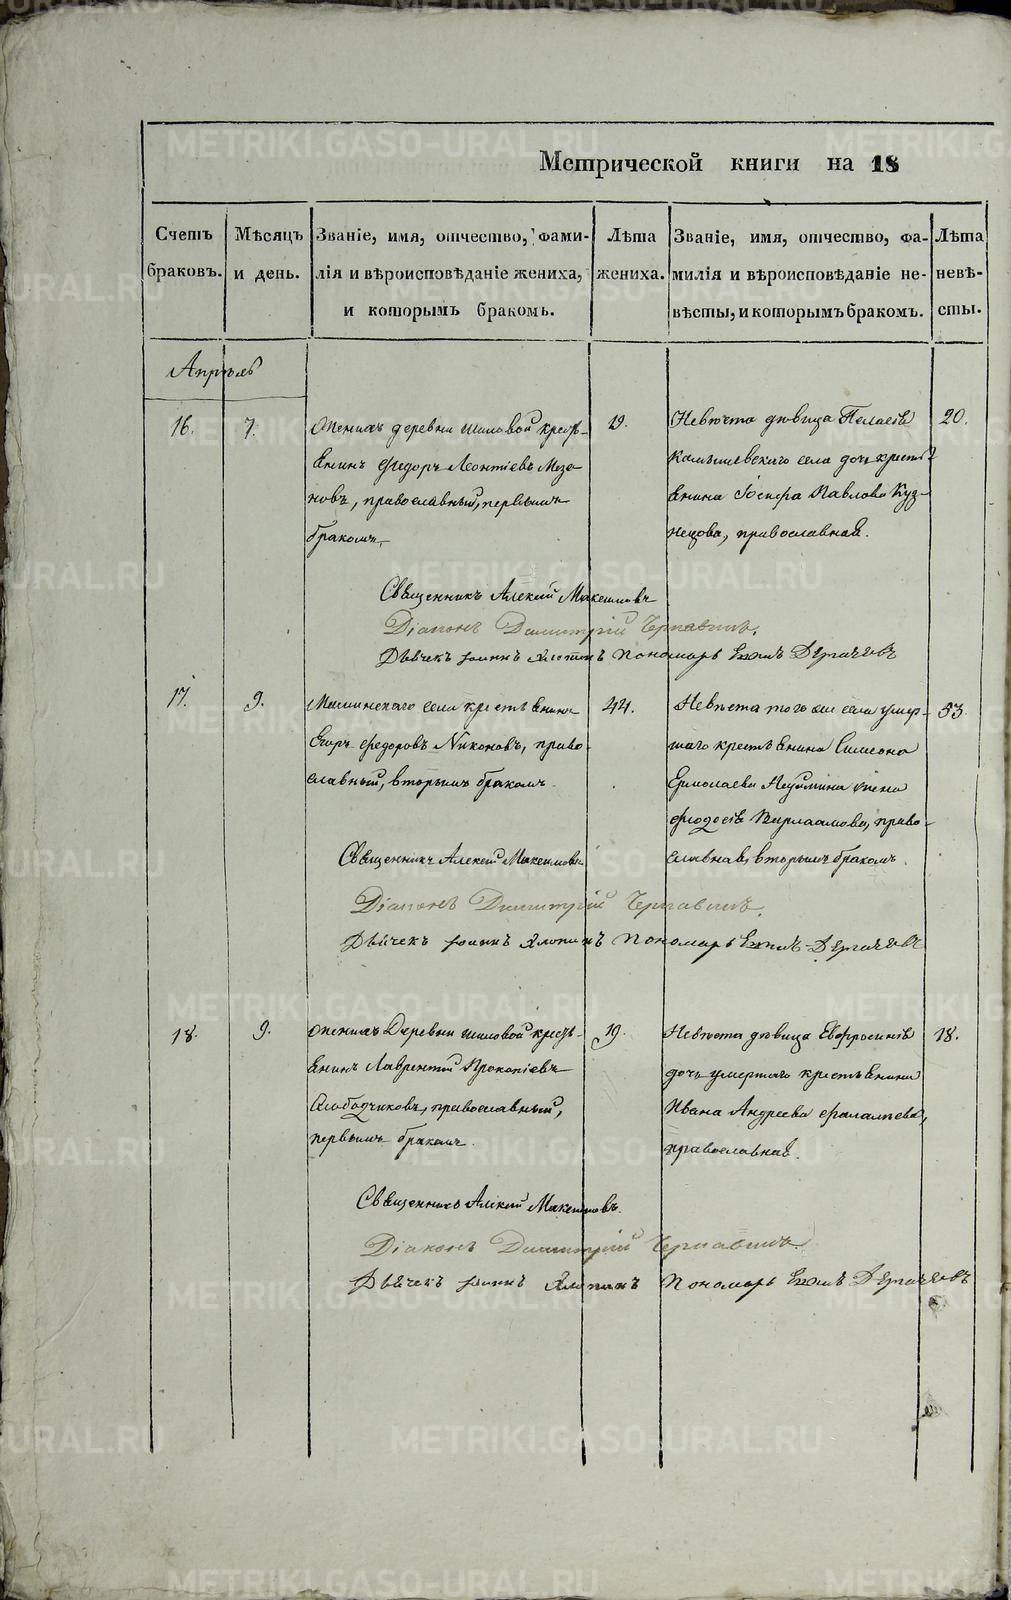 METRIKI.GASO-URAL.RU
Метрической книги на 18
Счетъ браковъ.
Мѣсяцъ и день.
Званіе, имя, отчество, фами-
лія и вѣроисповѣданіе жениха,
и которымъ бракомъ.
Лѣта жениха.
Званіе, имя, отчество, фа-
милія и вѣроисповѣданіе не-
вѣсты, и которымъ бракомъ.
Лѣта невѣ-
сты.
Апрѣль
16.
7.
Женихъ деревни Шиловой кресть-
янинъ Ѳедоръ Леонтіевъ Мезе-
новъ, православный, первымъ
бракомъ,
19.
Невѣста дѣвица Пелагія
Камышевскаго села дочь кресть-
янина Іосифа Павлова Куз-
нецова, православная.
20.
Священникъ Алексій Максимовъ
Діаконъ Димитрій Чернавинъ.
Дьячекъ Іоаннъ Пономарь Дерячевъ
17.
9.
села крестьянинъ
Егоръ Ѳедоровъ Никоновъ, право-
славный, вторымъ бракомъ.
44.
Невѣста того же села умер-
шаго крестьянина Симеона
Ермолаева Неуймина жена
Ѳеодосія Варлаамова, право-
славная, вторымъ бракомъ.
53.
Священникъ Алексій Максимовъ
Діаконъ Димитрій Чернавинъ.
Дьячекъ Іоаннъ Пономарь Дерячевъ
18.
9.
Женихъ Деревни Шиловой кресть-
янинъ Лаврентій Прокопіевъ
Слободчиковъ, православный,
первымъ бракомъ.
19.
Невѣста дѣвица Евфросинія
дочь умершаго крестьянина
Ивана Андреева
православная.
18.
Священникъ Алексій Максимовъ.
Діаконъ Димитрій Чернавинъ.
Дьячекъ Іоаннъ Пономарь Дерячевъ